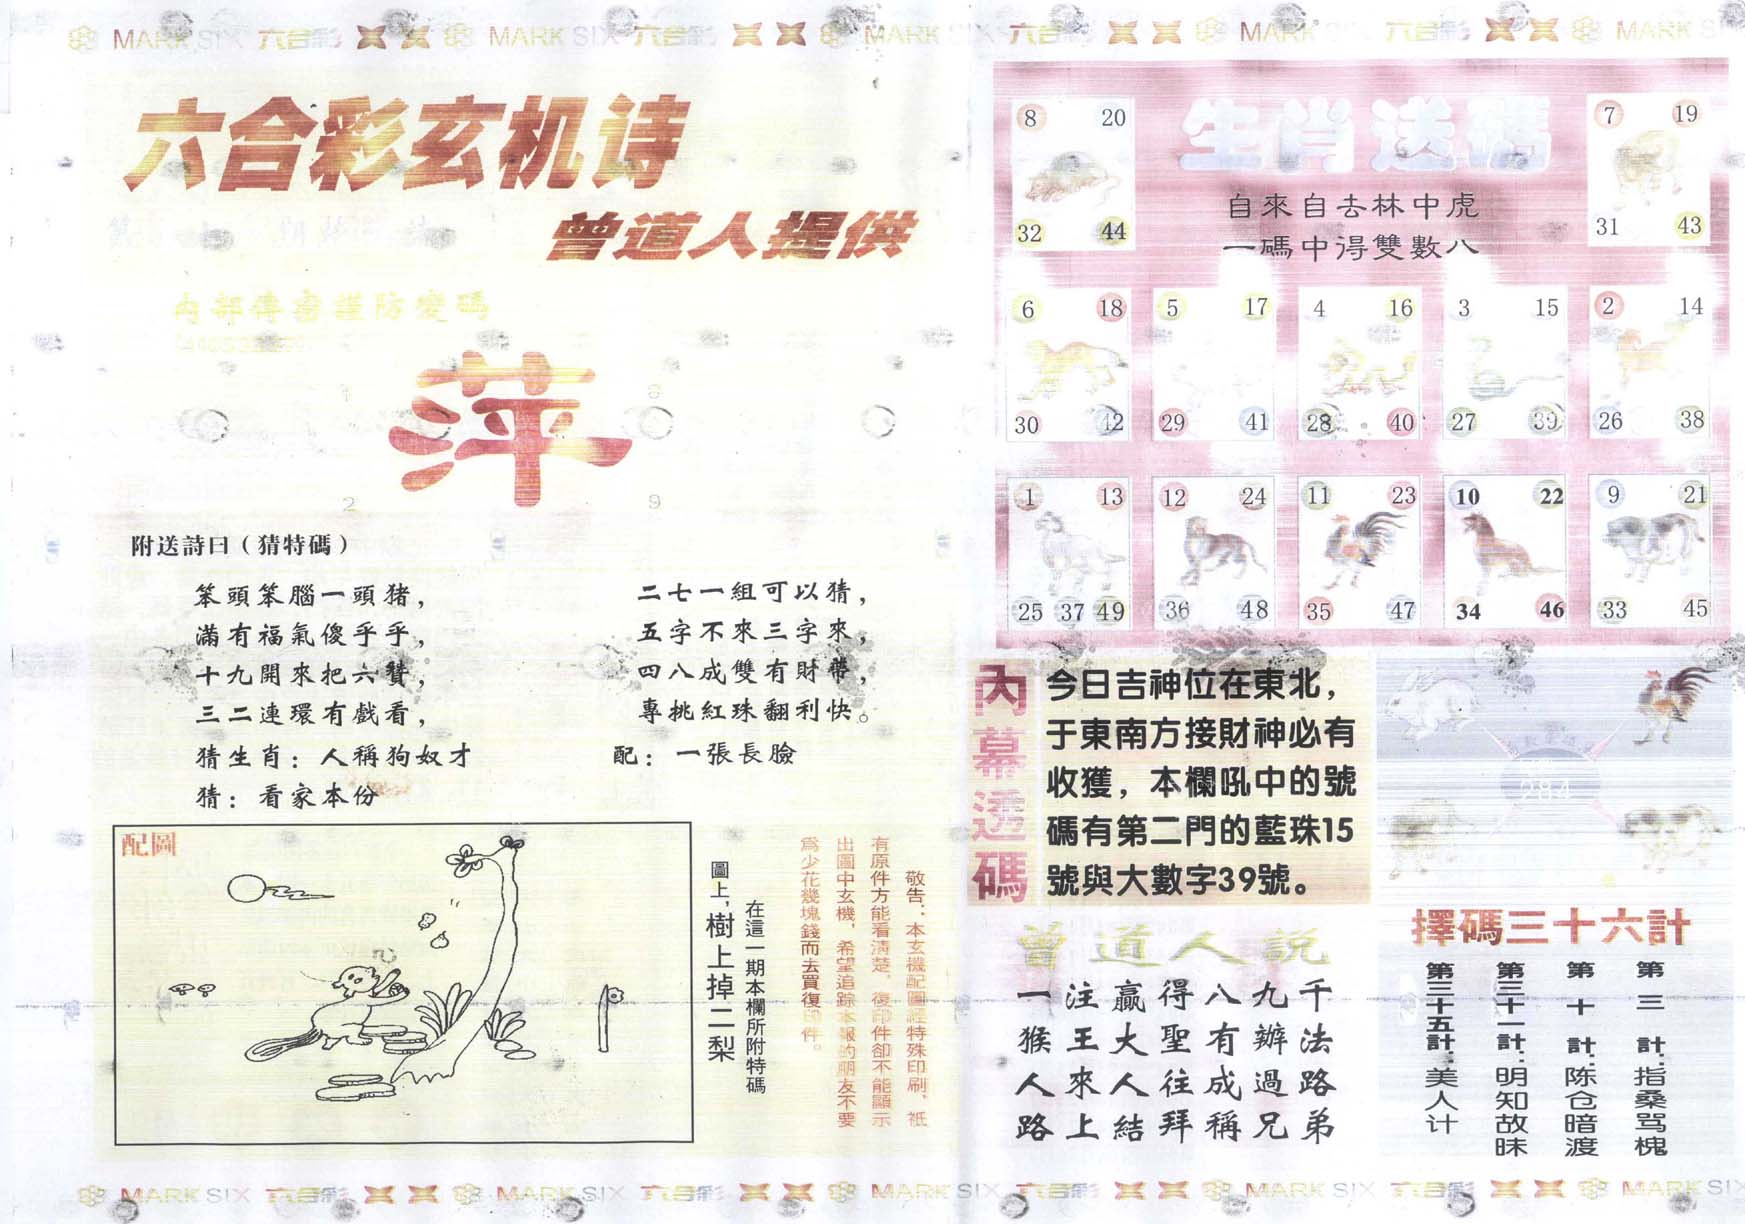 MARK SIX 六合彩 MARK SIX 六合彩 MARK SIX 六合彩 MARK SIX 六合彩 MARK SIX
六合彩玄机诗
曾道人提供
内部傳密謹防變碼
萍
2 9
附送詩曰（猜特碼）
笨頭笨腦一頭猪，
滿有福氣傻乎乎，
十九開來把六贊，
三二連環有戲看，
猜生肖：人稱狗奴才
猜：看家本份
二七一組可以猜，
五字不來三字來，
四八成雙有財帶，
專挑紅珠翻利快。
配：一張長臉
配圖
在這一期本欄所附特碼
圖上，樹上掉二梨
敬告：本玄機配圖經特殊印刷，衹
有原件方能看清楚，復印件卻不能顯示
出圖中玄機，希望追踪本報的朋友不要
爲少花幾塊錢而去買復印件。
生肖送碼
自來自去林中虎
一碼中得雙數八
8 20
32 44
7 19
31 43
6 18
30 42
5 17
29 41
4 16
28 40
3 15
27 39
2 14
26 38
1 13
25 37 49
12 24
36 48
11 23
35 47
10 22
34 46
9 21
33 45
內幕透碼
今日吉神位在東北，
于東南方接財神必有
收獲，本欄吼中的號
碼有第二門的藍珠15
號與大數字39號。
284
曾道人説
千法路弟
九辦過兄
八有成稱
得聖往拜
贏大人結
注王來上
一猴人路
擇碼三十六計
第三計：指桑骂槐
第十計：陈仓暗渡
第三十一計：明知故昧
第三十五計：美人计
MARK SIX 六合彩 MARK SIX 六合彩 MARK SIX 六合彩 MARK SIX 六合彩 MARK SIX